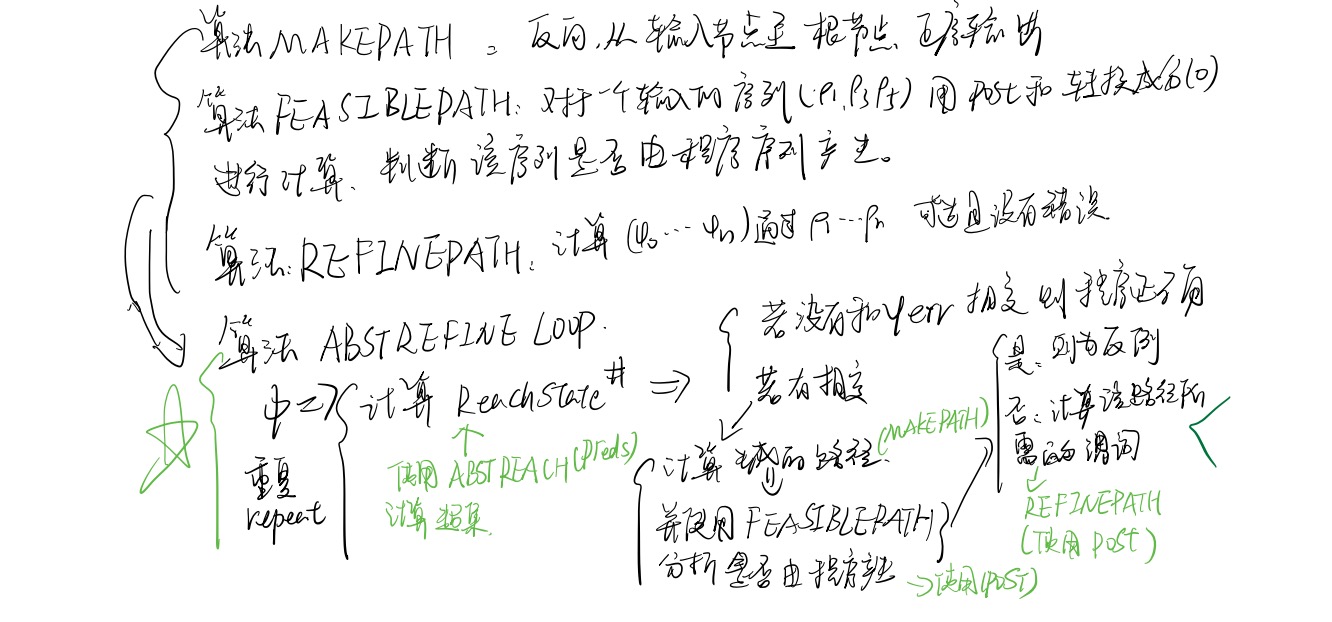 算法 MAKEPATH : 反向,从输入节点至根节点 逆序输出
算法 FEASIBLEPATH: 对于一个输入的序列(ρ1,ρ3ρ5) 用 post 和 转换成的(0)
进行计算、判断 该序列是否由程序序列产生。
算法: REFINEPATH: 计算 (φ0 ⋯ φn) 通过 ρ1⋯ρn 可达且没有错误
算法 ABSTREFINE LOOP.
若没有和 φerr 相交 则程序正确
若有相交
计算 ReachState# ⇒
重复
repeat
使用 ABSTREACH(Preds)
计算超集.
计算 的路径. (MAKEPATH)
并使用 FEASIBLEPATH
分析是否由程序产生 → 使用(POST)
是: 则为反例
否: 计算该路径所
需的谓词
REFINEPATH
(使用 POST)